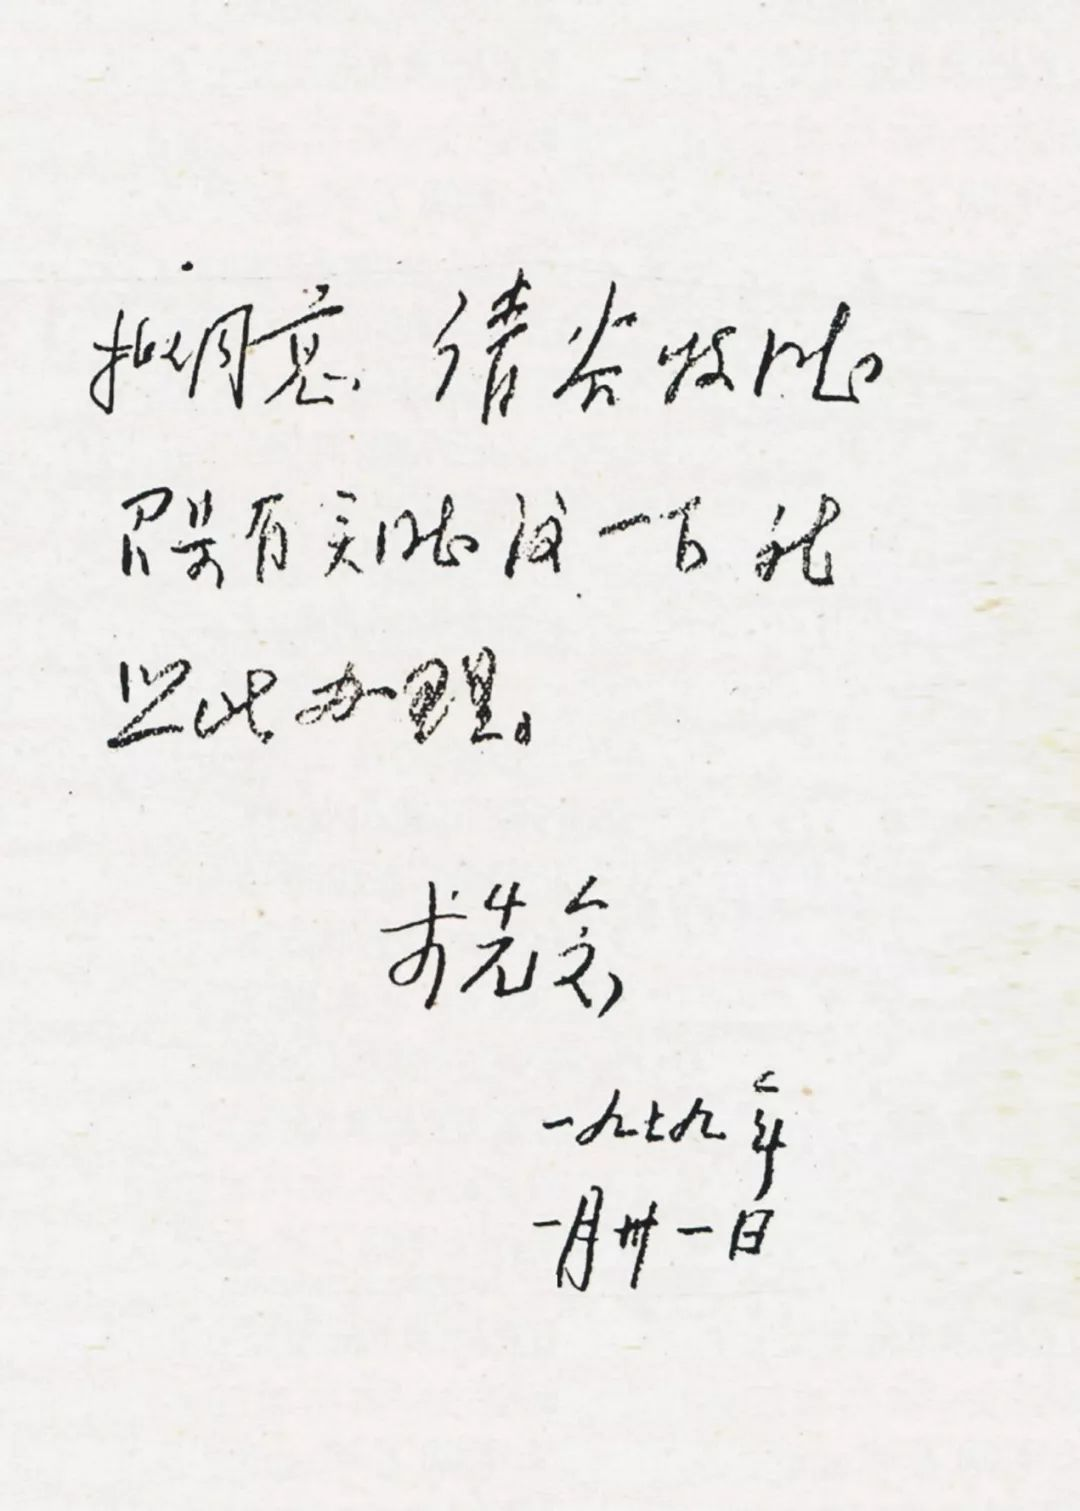 拟同意。请谷牧同志
召集有关同志议一下，就
照此办理。
李先念
一九七九年
一月卅一日